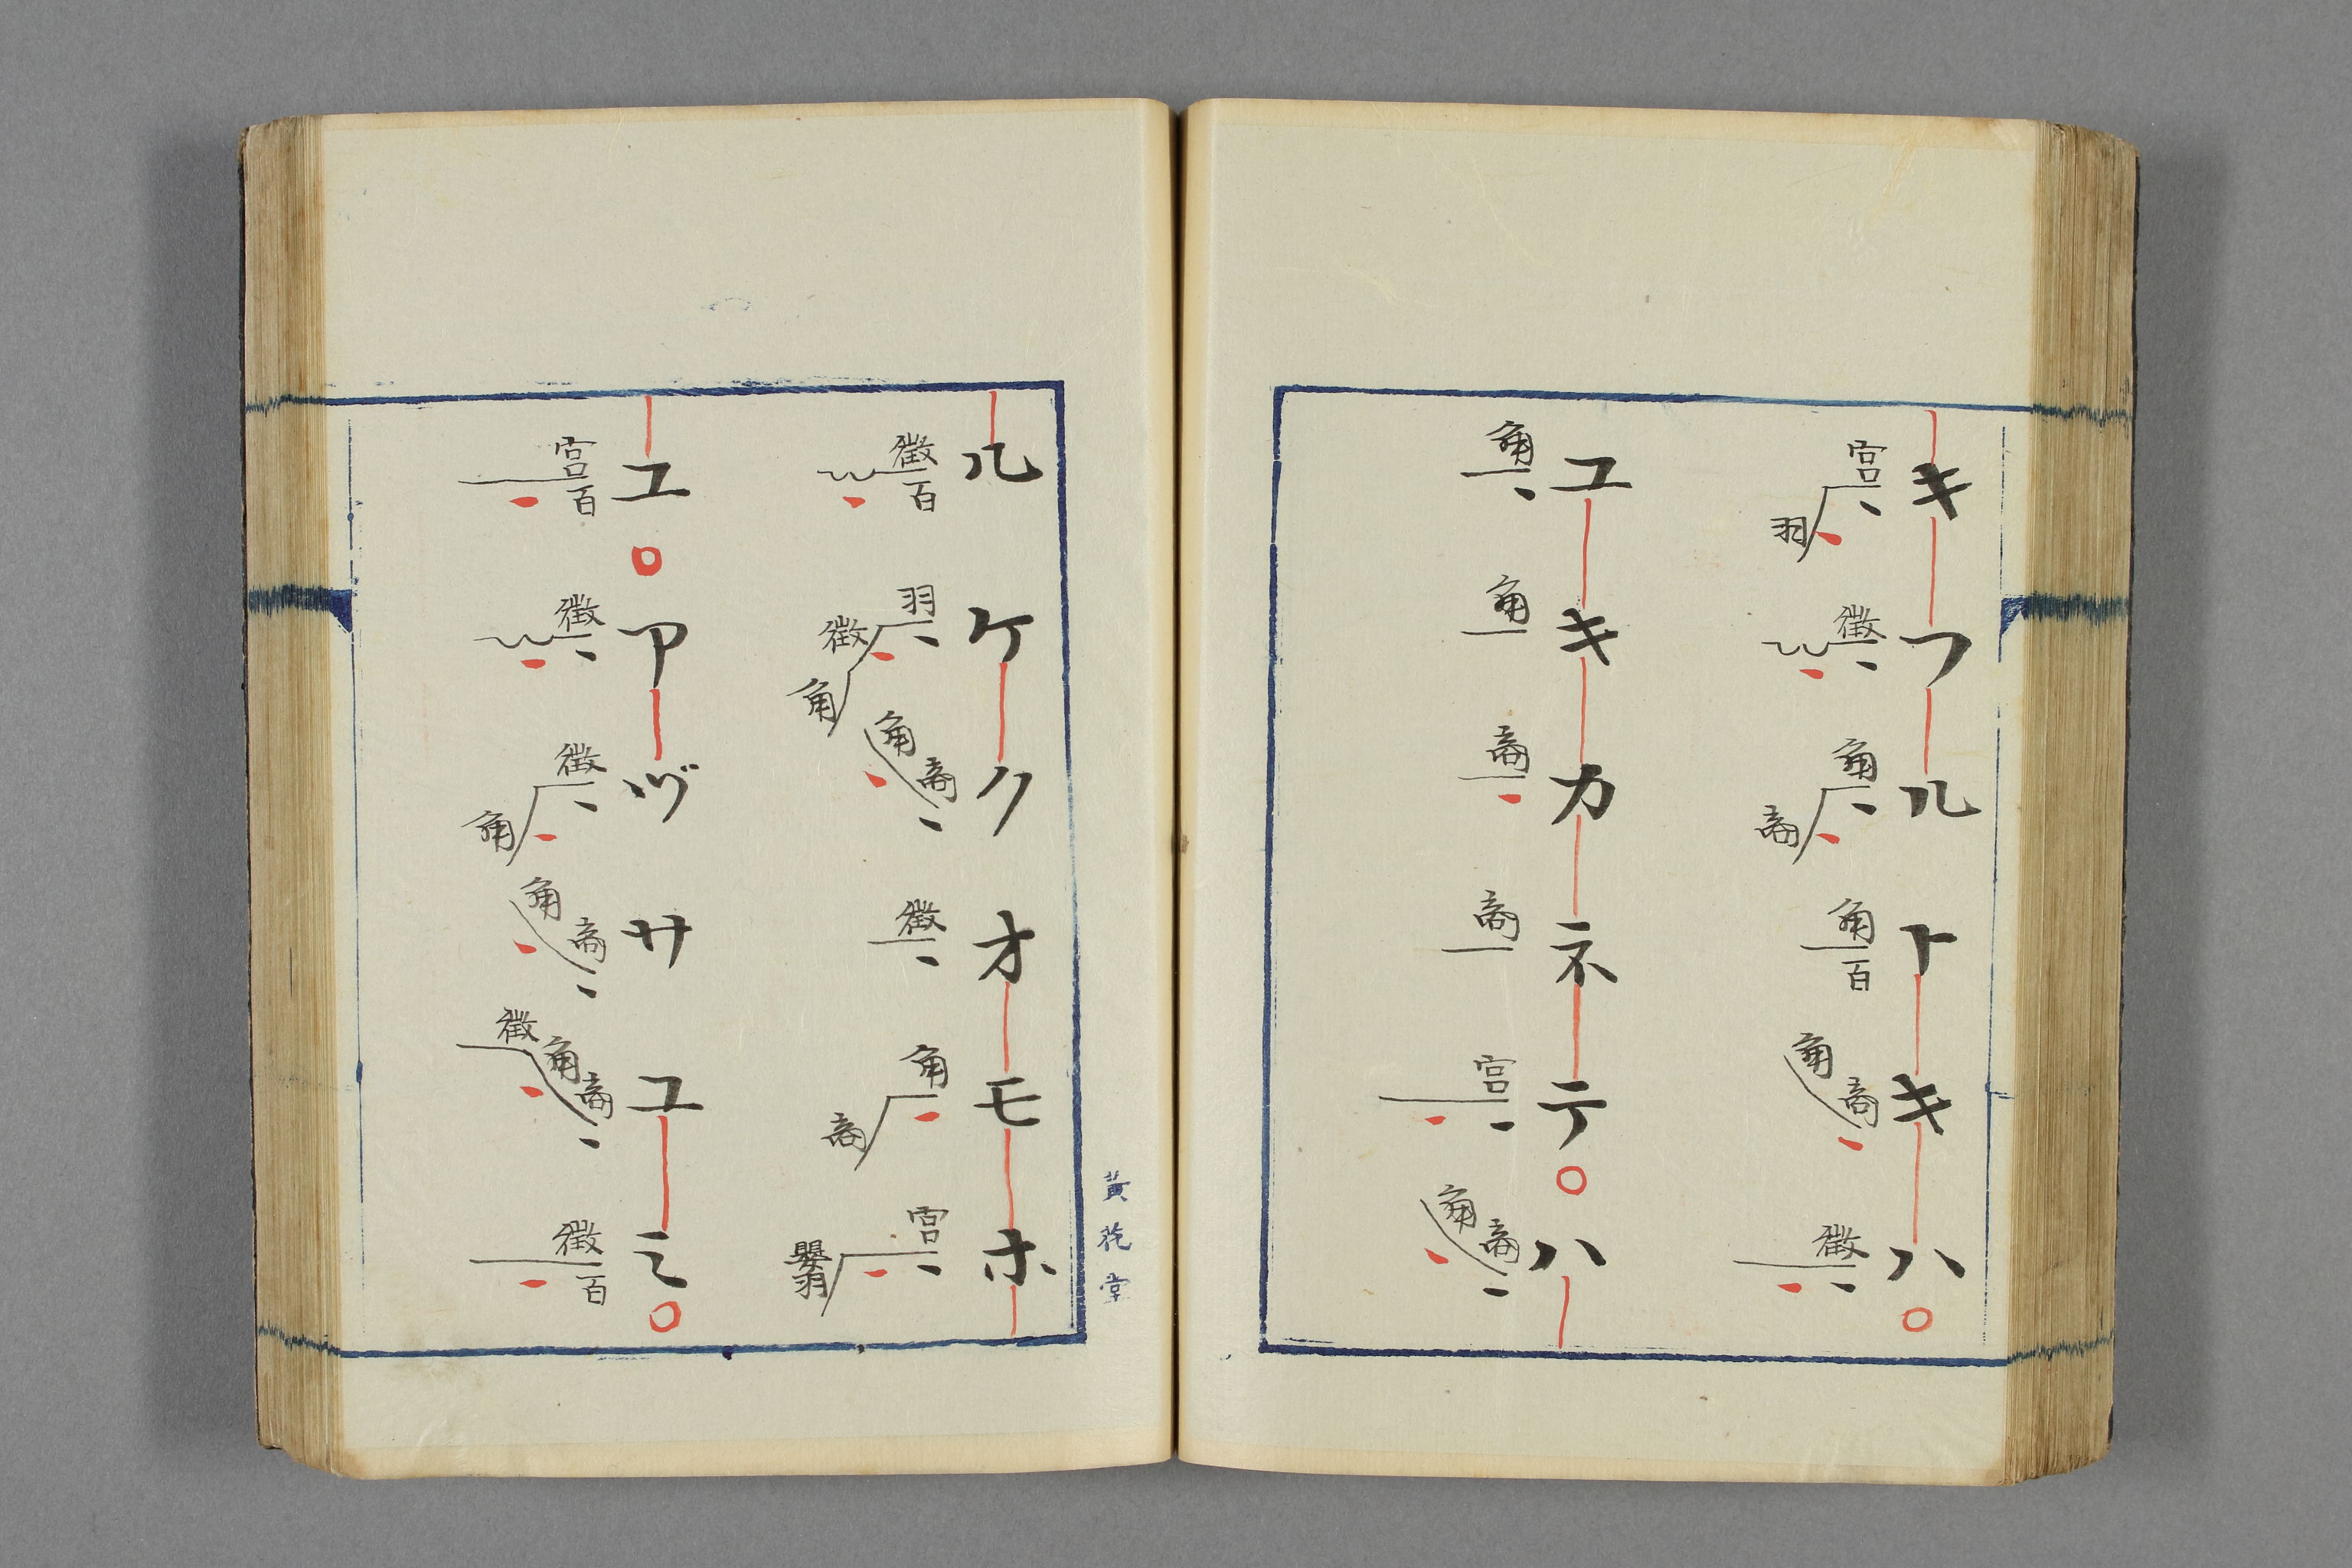 キフルトキハ
宮羽徴角商角百角商徴
ユキカネテハ
角角商商宮角商
ルケクオモホ
徴百羽徴角角商徴角商宮嬰羽
ユアヅサユミ
宮百徴徴角角商徴角商徴百
黄花堂